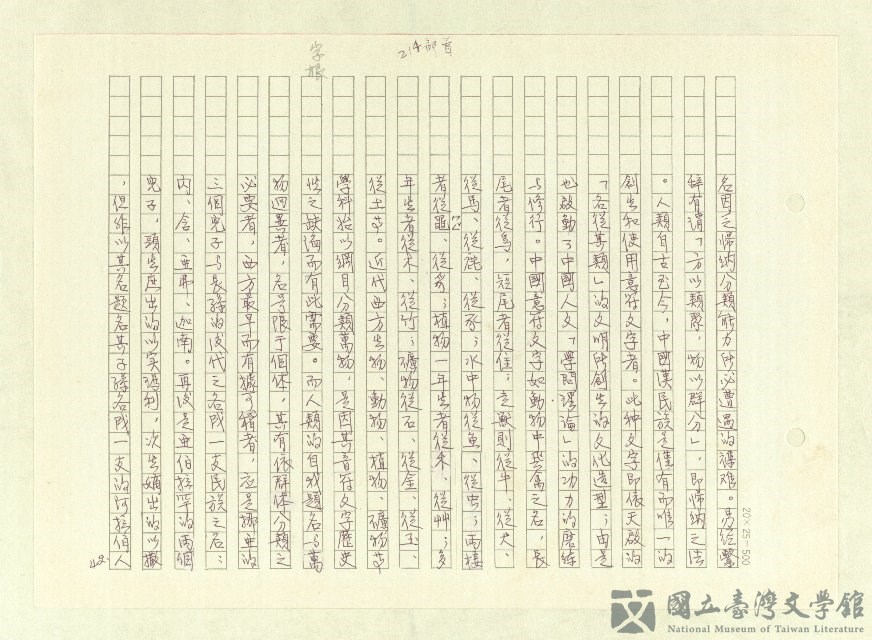 214部首
字根
名因之歸納分類能力所必遭遇的禪難。易經繫
辭有謂「方以類聚,物以群分」,即歸納之法
。人類自古至今,中國漢民族是僅有而唯一的
創生和使用意符文字者。此种文字即依天啟的
「各從其類」的文明所創生的文化造型;由是
也啟動了中國人文「學問理論」的功力的磨練
与修行。中國意符文字如動物中飛禽之名,長
尾者從鳥,短尾者從隹;走獸則從牛、從犬、
從馬、從鹿、從豕;水中物從魚、從虫;兩棲
者從黽、從豸;植物一年生者從禾、從艸;多
年生者從木、從竹;礦物從石、從金、從玉、
從土等。近代西方生物、動物、植物、礦物等
學科始以綱目分類萬物,是因其音符文字歷史
性之缺陷而有此需要。而人類的自我題名与萬
物迥異者,名号限于個体,其有依群体分類之
必要者,西方最早而有據可稽者,應是挪亞的
三個兒子与長孫的後代之名成一支民族之名:
內、含、亞弗、迦南。再後是亞伯拉罕的兩個
兒子,頭生庶出的以實瑪利,次生嫡出的以撒
,但非以其名題名其子孫各成一支的阿拉伯人
42.
20×25=500
國立臺灣文學館
National Museum of Taiwan Literature